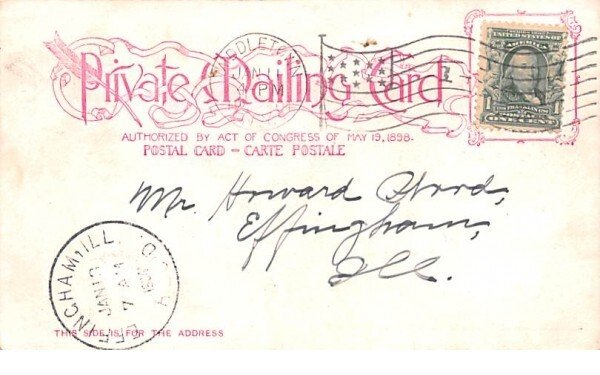 Private Mailing Card
AUTHORIZED BY ACT OF CONGRESS OF MAY 19, 1898.
POSTAL CARD – CARTE POSTALE
MIDDLETOWN
JAN
PM
UNITED STATES OF
AMERICA
FRANKLIN
POSTAGE
1 1
ONE CENT
Mr Howard Wood,
Effingham,
Ill.
EFFINGHAM, ILL.
REC'D
JAN 19
7 AM
THIS SIDE IS FOR THE ADDRESS